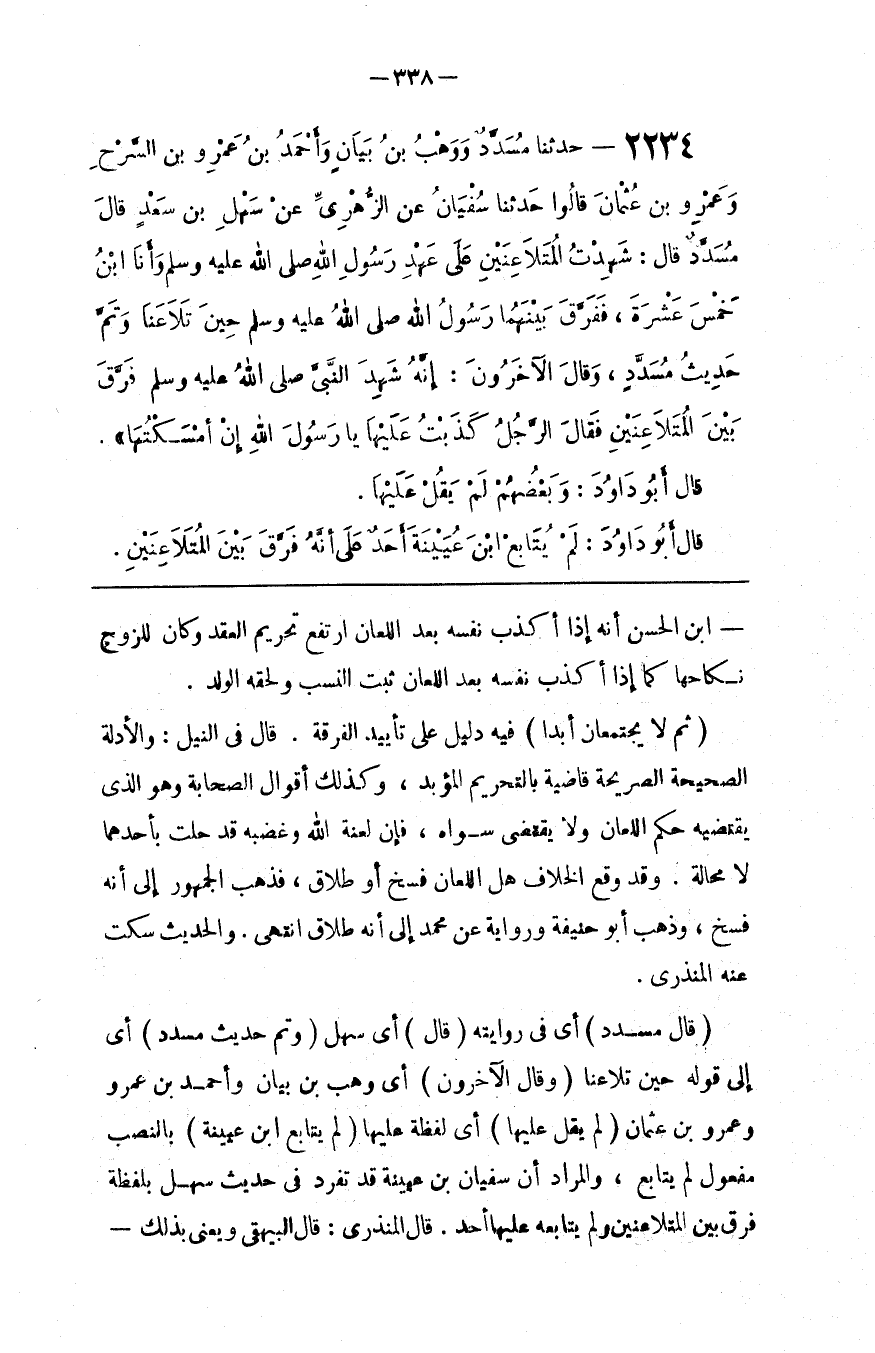 — ٣٣٨ —
٢٢٣٤ — حدثنا مُسَدَّدٌ وَوَهْبُ بنُ بَيَانٍ وَأَحْمَدُ بنُ عَمْرِو بن السَّرْحِ
وَعَمْرِو بن عُثْمَانَ قالُوا حَدثنا سُفْيَانُ عن الزُّهْرِىِّ عنْ سَهْلِ بن سَعْدٍ قالَ
مُسَدَّدٌ قال : شَهِدْتُ الْمُتَلَاعِنَيْنِ عَلَى عَهْدِ رَسُولِ اللهِ صلى الله عليه وسلم وَأَنَا ابْنُ
خَمْسَ عَشْرَةَ ، فَفَرَّقَ بَيْنَهُمَا رَسُولُ الله صلى اللهُ عليه وسلم حِينَ تَلَاعَنَا وَتَمَّ
حَدِيثُ مُسَدَّدٍ ، وَقالَ الآخَرُونَ : إنَّهُ شَهِدَ النَّبىَّ صلى اللهُ عليه وسلم فَرَّقَ
بَيْنَ الْمُتَلَاعِنَيْنِ فَقَالَ الرَّجُلُ كَذَبْتُ عَلَيْهَا يا رَسُولَ اللهِ إنْ أمْسَكْتُهَا» .
قال أَبُو دَاوُدَ : وَبَعْضُهُمْ لَمْ يَقُلْ عَلَيْهَا .
قال أَبُو دَاوُدَ : لَمْ يُتَابِعْ ابْنَ عُيَيْنَةَ أَحَدٌ عَلَى أنَّهُ فَرَّقَ بَيْنَ الْمُتَلَاعِنَيْنِ .
— ابن الحسن أنه إذا أكذب نفسه بعد اللعان ارتفع تحريم العقد وكان للزوج
نكاحها كما إذا أكذب نفسه بعد اللعان ثبت النسب ولحقه الولد .
( ثم لا يجتمعان أبدا ) فيه دليل على تأبيد الفرقة . قال فى النيل : والأدلة
الصحيحة الصريحة قاضية بالتحريم المؤبد ، وكذلك أقوال الصحابة وهو الذى
يقتضيه حكم اللعان ولا يقتضى سواه ، فإن لعنة الله وغضبه قد حلت بأحدهما
لا محالة . وقد وقع الخلاف هل اللعان فسخ أو طلاق ، فذهب الجمهور إلى أنه
فسخ ، وذهب أبو حنيفة ورواية عن محمد إلى أنه طلاق انتهى . والحديث سكت
عنه المنذرى .
( قال مسدد ) أى فى روايته ( قال ) أى سهل ( وتم حديث مسدد ) أى
إلى قوله حين تلاعنا ( وقال الآخرون ) أى وهب بن بيان وأحمد بن عمرو
وعمرو بن عثمان ( لم يقل عليها ) أى لفظة عليها ( لم يتابع ابن عيينة ) بالنصب
مفعول لم يتابع ، والمراد أن سفيان بن عيينة قد تفرد فى حديث سهل بلفظة
فرق بين المتلاعنين ولم يتابعه عليها أحد . قال المنذرى : قال البيهقى ويعنى بذلك —